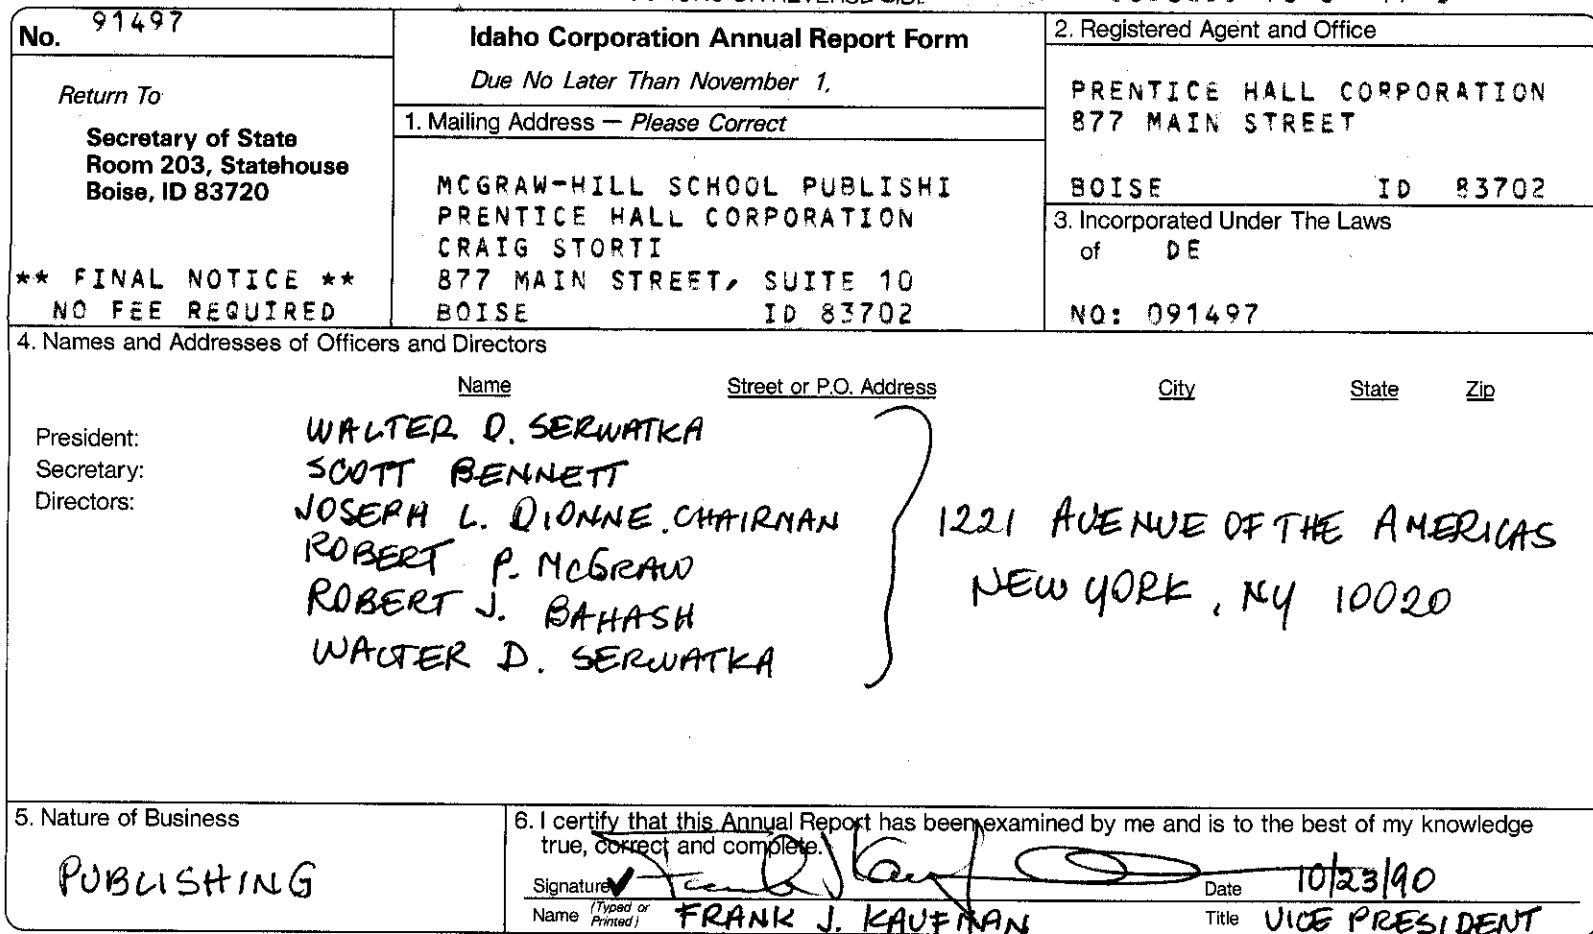 No. 91497
Return To
Secretary of State
Room 203, Statehouse
Boise, ID 83720
** FINAL NOTICE **
NO FEE REQUIRED
Idaho Corporation Annual Report Form
Due No Later Than November 1,
1. Mailing Address — Please Correct
MCGRAW-HILL SCHOOL PUBLISHI
PRENTICE HALL CORPORATION
CRAIG STORTI
877 MAIN STREET, SUITE 10
BOISE ID 83702
2. Registered Agent and Office
PRENTICE HALL CORPORATION
877 MAIN STREET
BOISE ID 83702
3. Incorporated Under The Laws
of DE
NO: 091497
4. Names and Addresses of Officers and Directors
Name Street or P.O. Address City State Zip
President: WALTER D. SERWATKA
Secretary: SCOTT BENNETT
Directors: JOSEPH L. DIONNE, CHAIRMAN
ROBERT P. MCGRAW
ROBERT J. BAHASH
WALTER D. SERWATKA
1221 AVENUE OF THE AMERICAS
NEW YORK, NY 10020
5. Nature of Business
PUBLISHING
6. I certify that this Annual Report has been examined by me and is to the best of my knowledge
true, correct and complete.
Signature Frank J Kaufman Date 10/23/90
Name (Typed or Printed) FRANK J. KAUFMAN Title VICE PRESIDENT